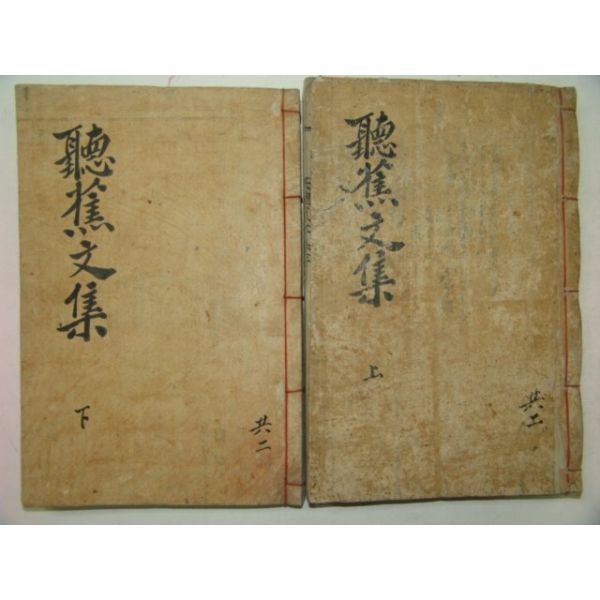 聽蕉文集
上
共二
聽蕉文集
下
共二